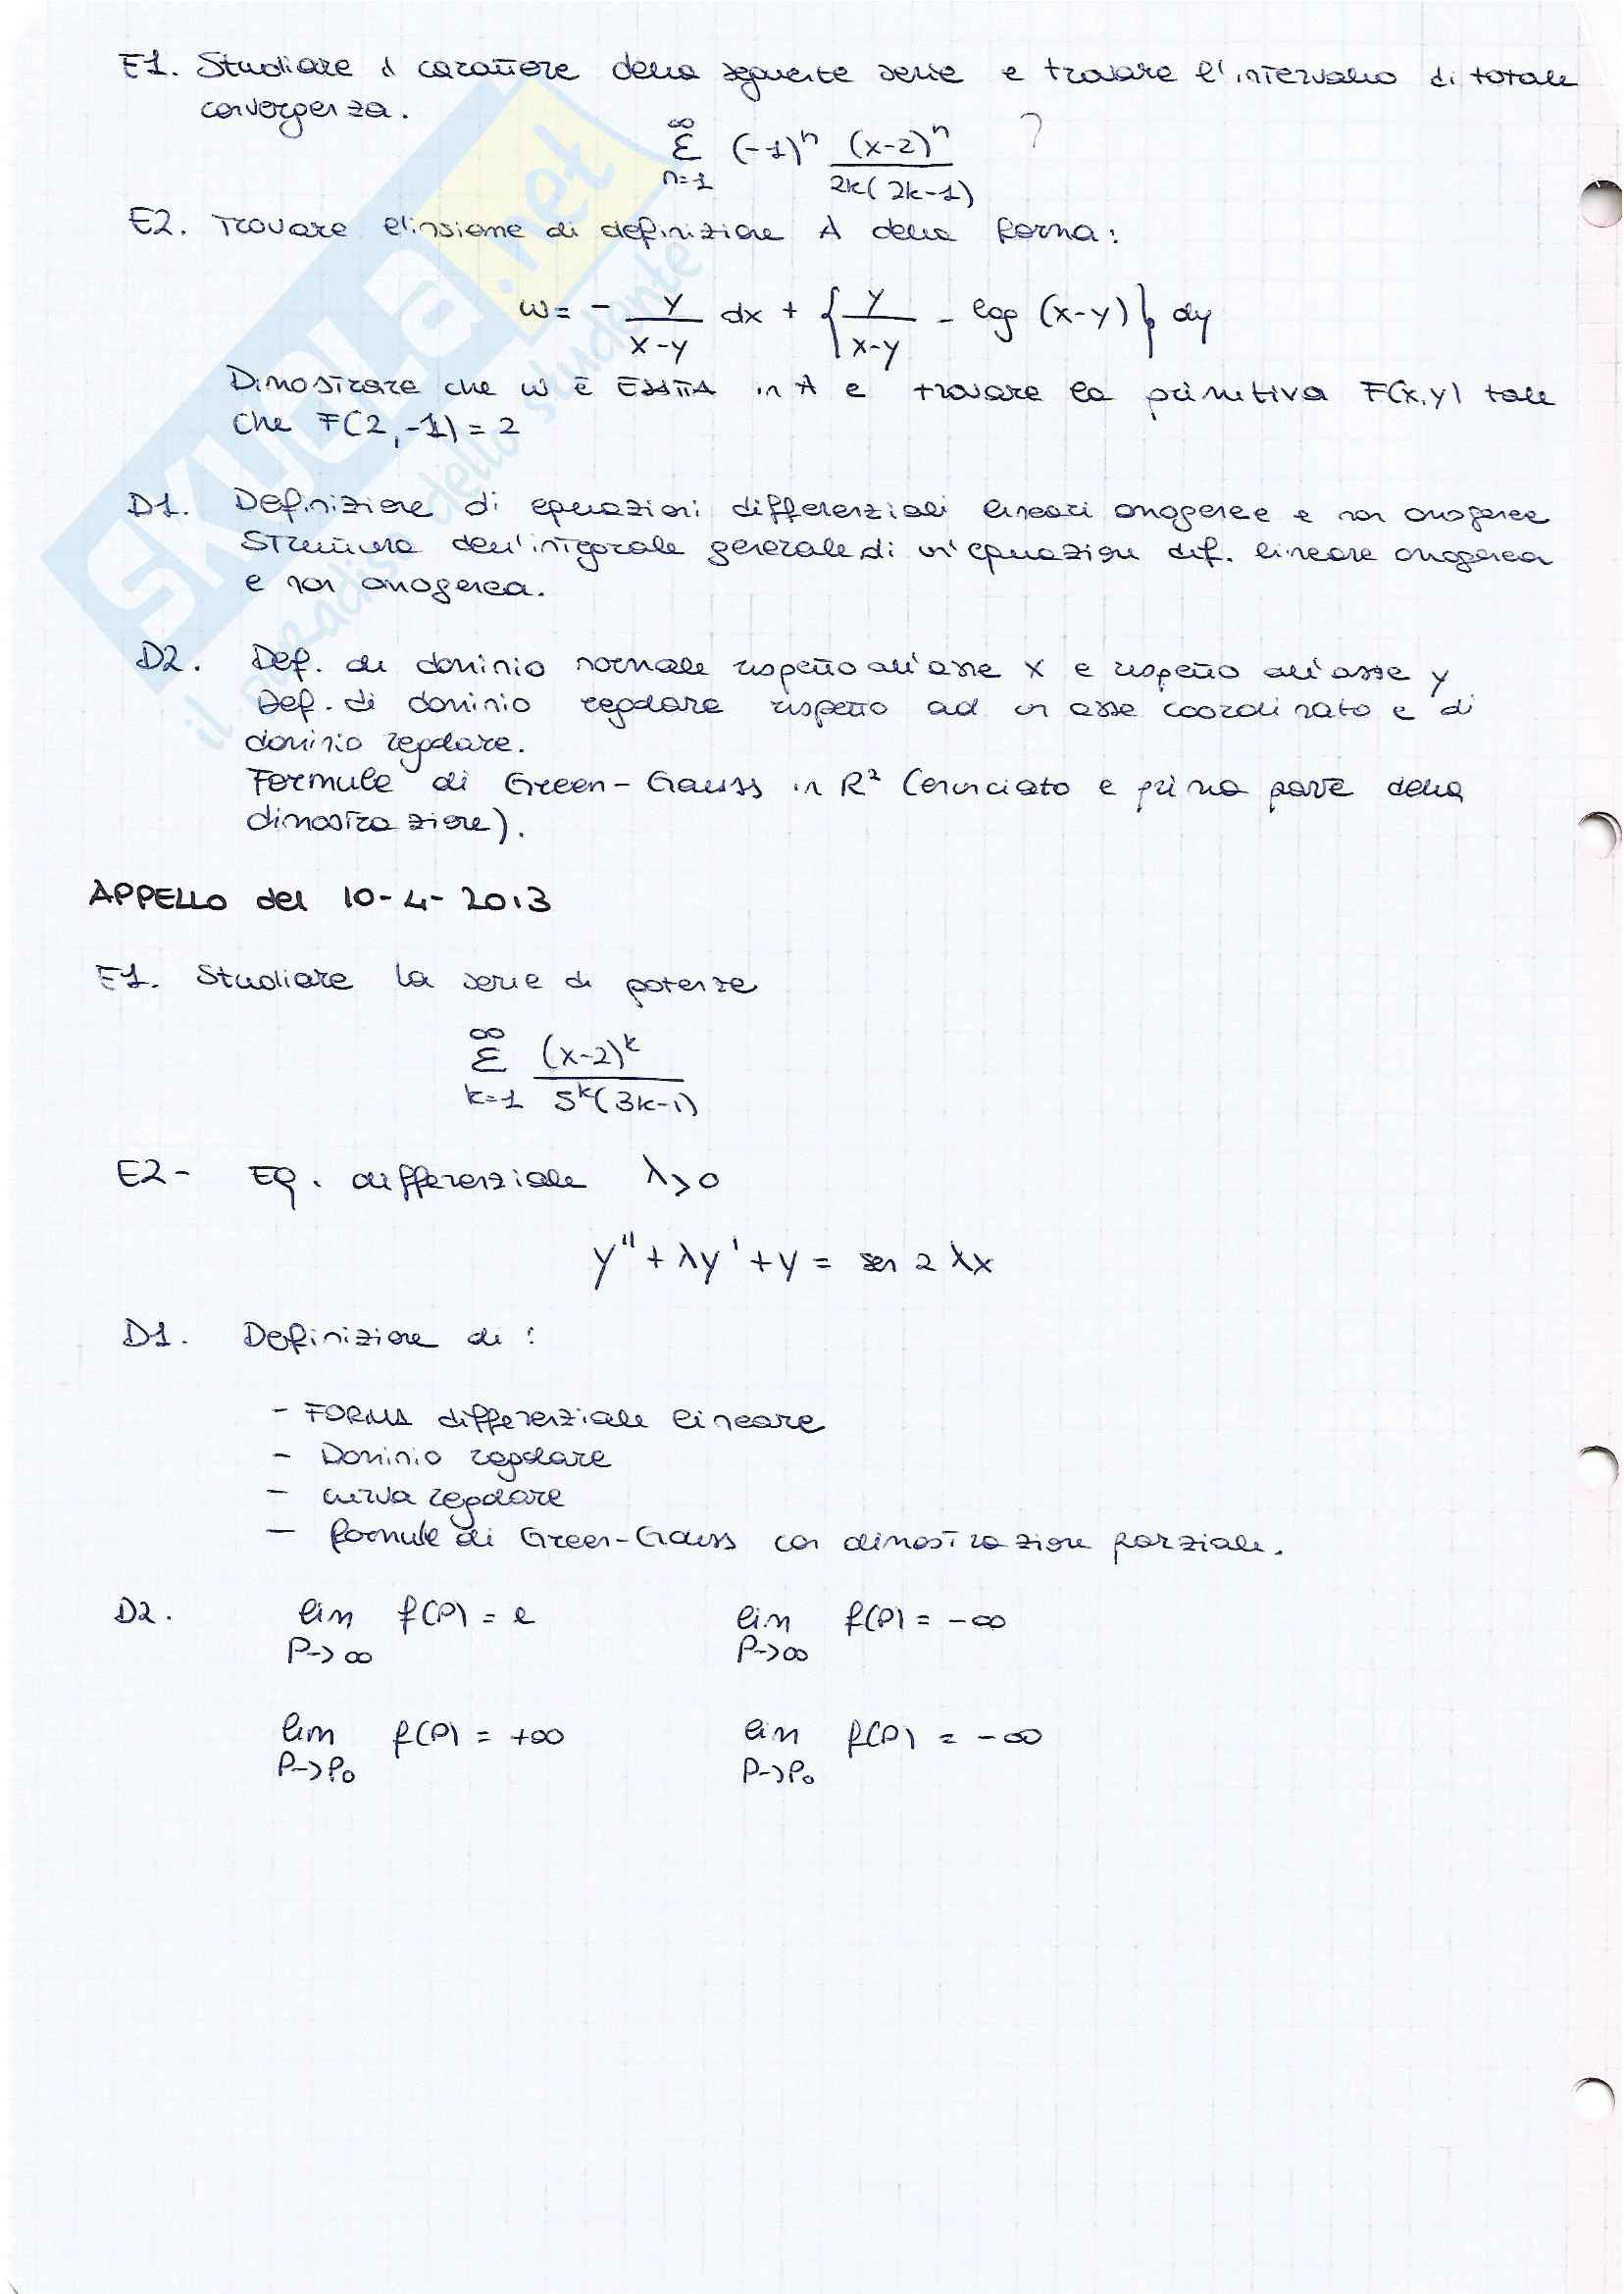 E1. Studiare il carattere della seguente serie e trovare l'intervallo di totale
convergenza.
∞
Σ (-1)ⁿ (x-2)ⁿ / 2k(2k-1) ?
n=1
E2. Trovare l'insieme di definizione A della forma:
w = - y/(x-y) dx + { y/(x-y) - log (x-y) } dy
Dimostrare che w è ESATTA in A e trovare la primitiva F(x,y) tale
che F(2,-1) = 2
D1. Definizione di equazioni differenziali lineari omogenee e non omogenee
Struttura dell'integrale generale di un'equazione dif. lineare omogenea
e non omogenea.
D2. Def. di dominio normale rispetto all'asse x e rispetto all'asse y
Def. di dominio regolare rispetto ad un asse coordinato e di
dominio regolare.
Formule di Green-Gauss in R² (enunciato e prima parte della
dimostrazione).
APPELLO del 10-4-2013
E1. Studiare la serie di potenze
∞
Σ (x-2)ᵏ / 5ᵏ(3k-1)
k=1
E2- EQ. differenziale λ>0
y'' + λy' + y = sen 2λx
D1. Definizione di:
- FORMA differenziale lineare
- Dominio regolare
- curva regolare
- formule di Green-Gauss con dimostrazione parziale.
D2. lim f(P) = l lim f(P) = -∞
P→∞ P→∞
lim f(P) = +∞ lim f(P) = -∞
P→P₀ P→P₀
SKUOLA.net
il paradiso dello studente